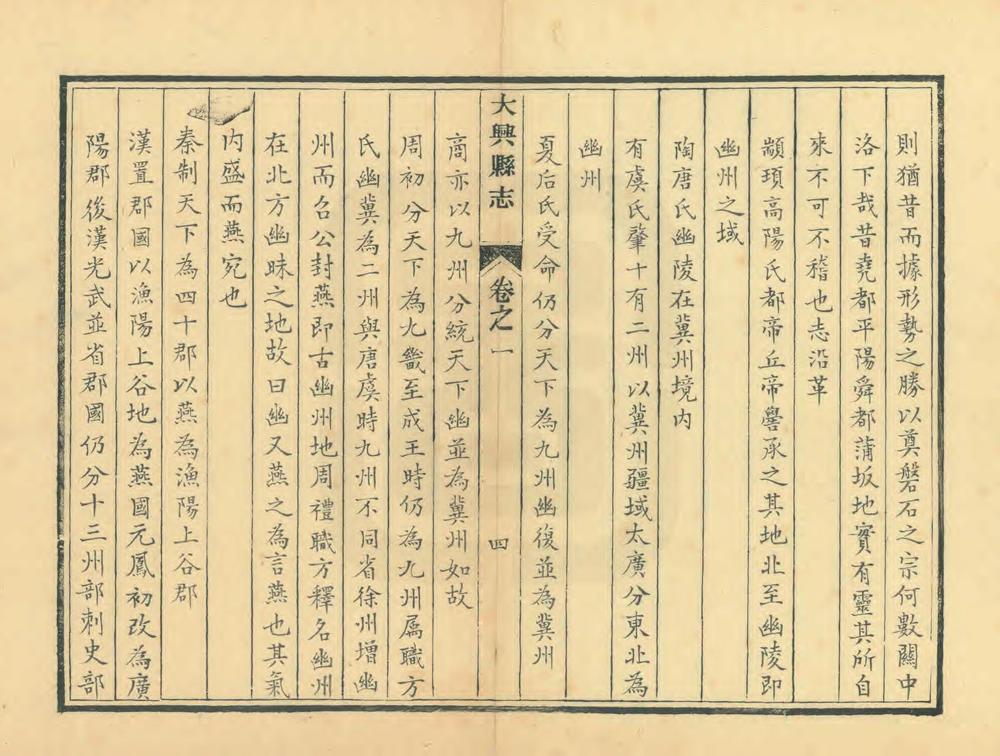 則猶昔而據形勢之勝以奠磐石之宗何數關中
洛下哉昔堯都平陽舜都蒲坂地實有靈其所自
來不可不稽也志沿革
顓頊高陽氏都帝丘帝嚳承之其地北至幽陵即
幽州之域
陶唐氏幽陵在冀州境内
有虞氏肇十有二州以冀州疆域太廣分東北為
幽州
夏后氏受命仍分天下為九州幽復並為冀州
大興縣志
卷之一
四
商亦以九州分統天下幽並為冀州如故
周初分天下為九畿至成王時仍為九州屬職方
氏幽冀為二州與唐虞時九州不同省徐州增幽
州而名公封燕即古幽州地周禮職方釋名幽州
在北方幽昧之地故曰幽又燕之為言燕也其氣
内盛而燕宛也
秦制天下為四十郡以燕為漁陽上谷郡
漢置郡國以漁陽上谷地為燕國元鳳初改為廣
陽郡後漢光武並省郡國仍分十三州部刺史部